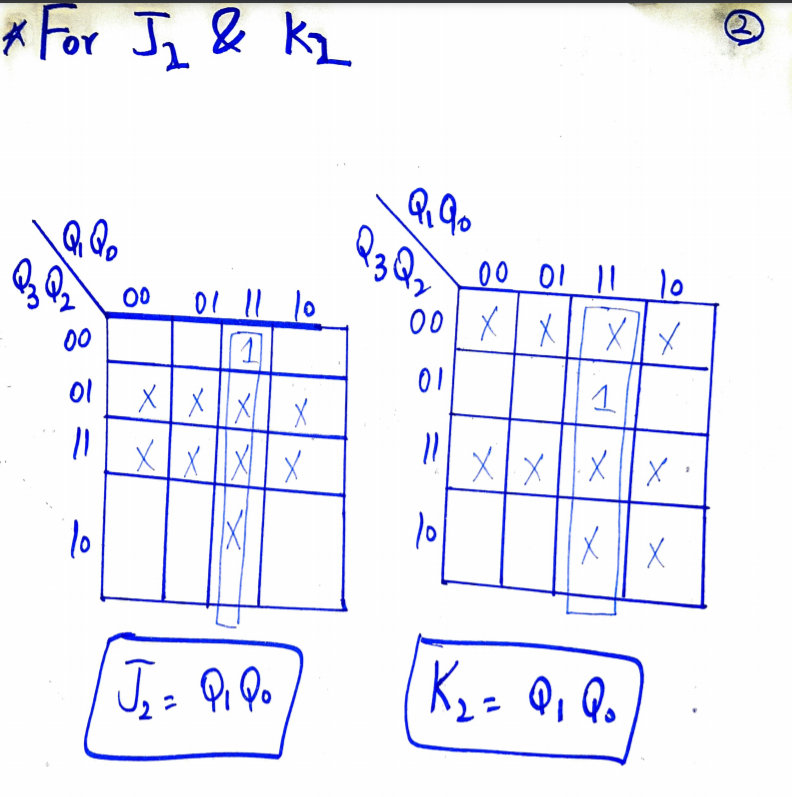 * For J₂ & K₂
②
Q₁Q₀
Q₃Q₂
00 01 11 10
00 1
01 X X X X
11 X X X X
10 X
J₂ = Q₁Q₀
Q₁Q₀
Q₃Q₂
00 01 11 10
00 X X X X
01 1
11 X X X X
10 X X
K₂ = Q₁Q₀